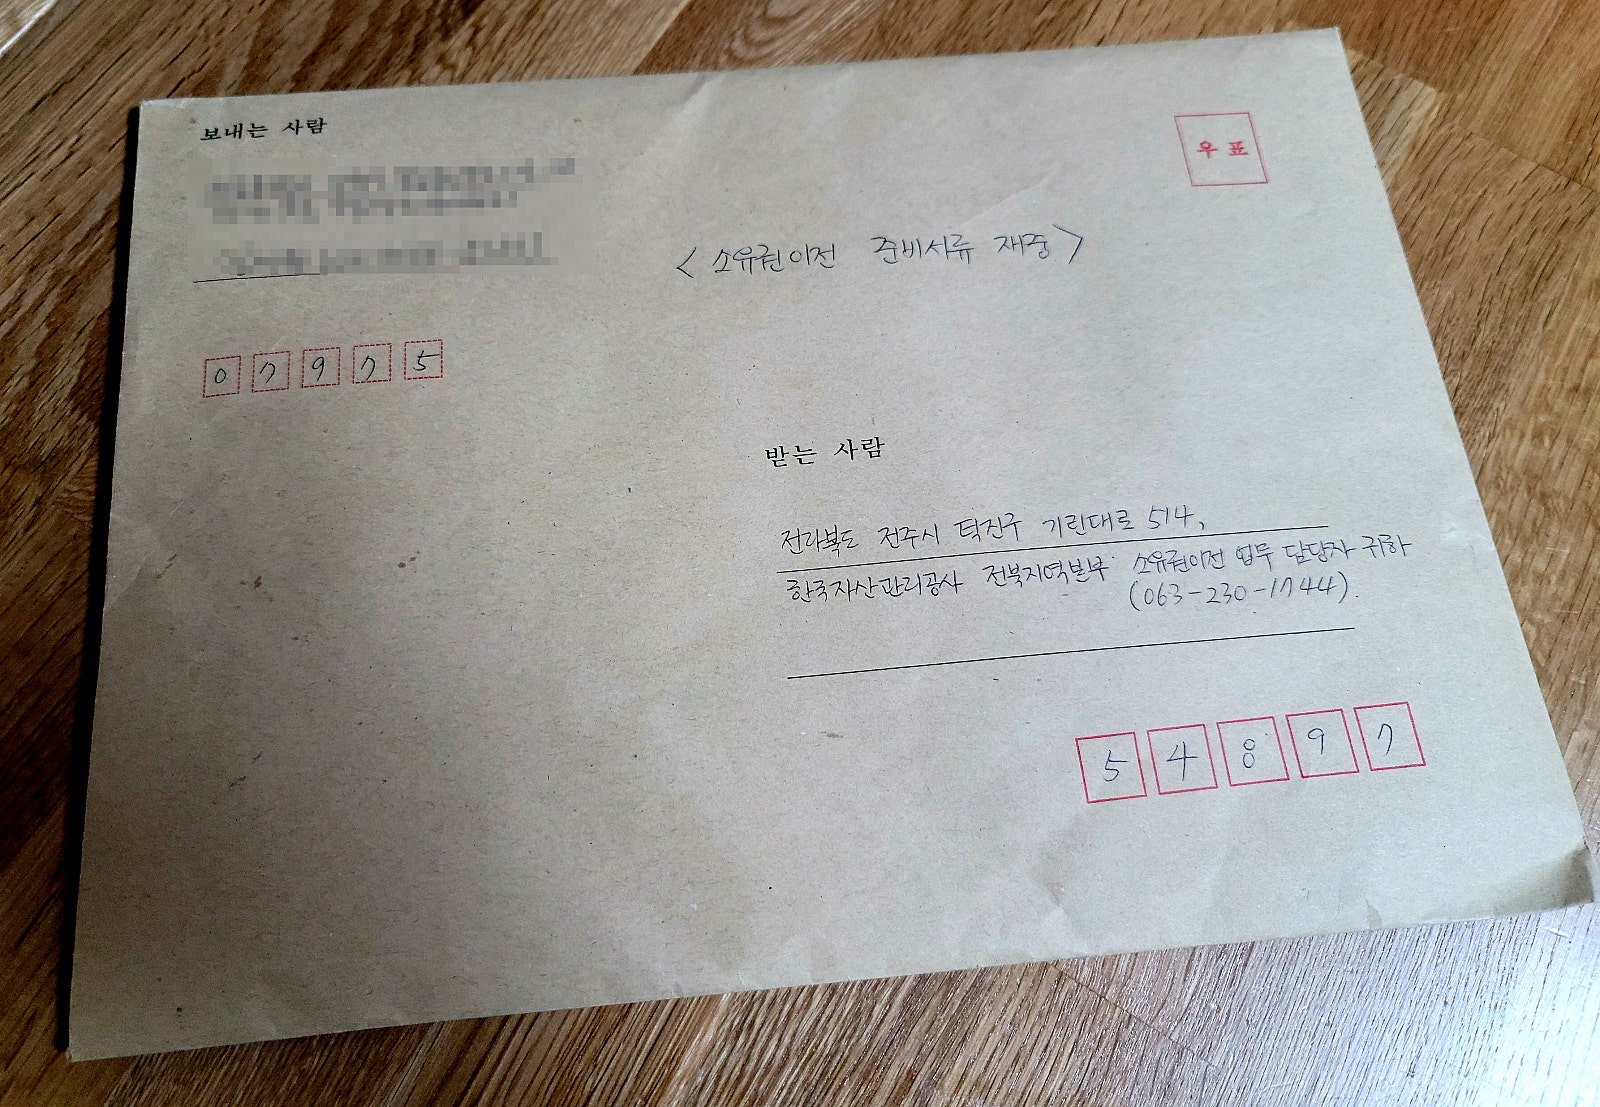 보내는 사람
우표
< 소유권이전 준비서류 재중 >
07975
받는 사람
전라북도 전주시 덕진구 기린대로 514,
한국자산관리공사 전북지역본부 소유권이전 업무 담당자 귀하
(063-230-1744)
54897